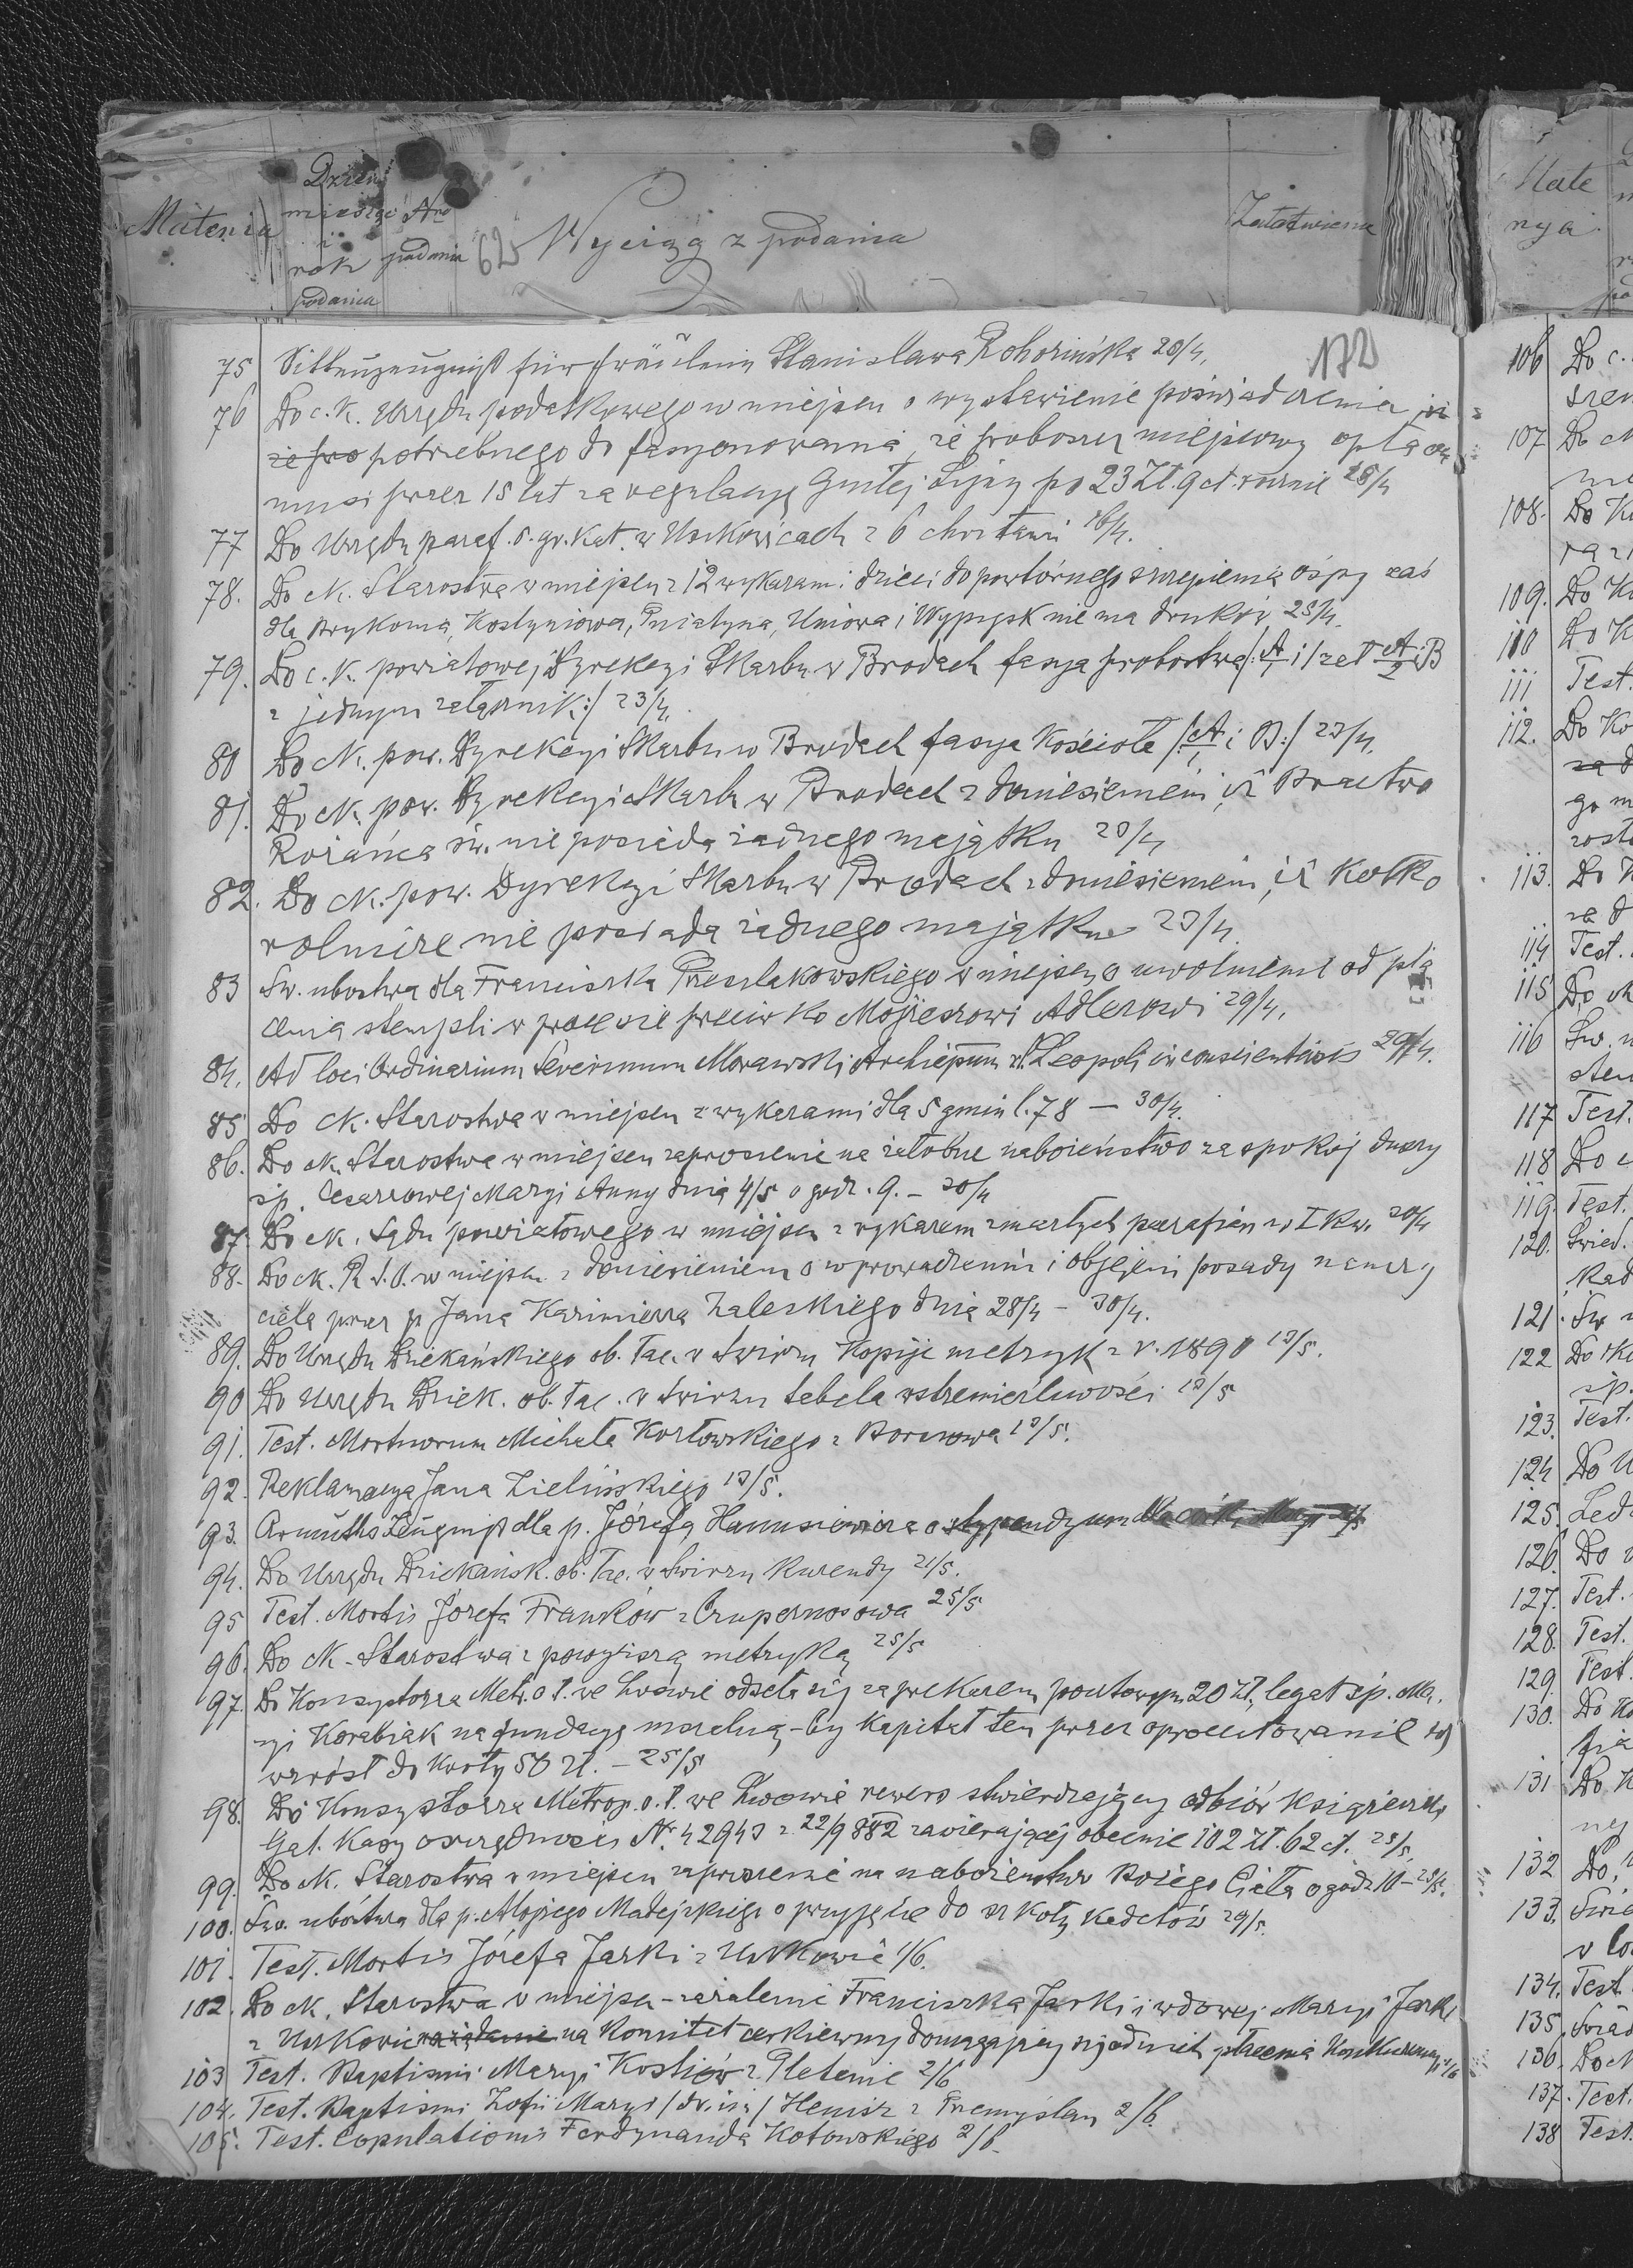 Materia
Dzień
miesiąc
i
rok
podania
Nro
podania
62
Wyciąg z podania
Załatwienie
172
75 Sittenzeugniß für Fräulein Stanisława Rohozińska 20/4.
76 Do c. k. Urzędu podatkowego w miejscu o wystawienie poświadczenia
że pro potrzebnego do fasyonowania, że proboszcz miejscowy opłacać
musi przez 15 lat za regulacyę Gniłej Lipy po 23 Zł. 9 ct. rocznie 28/4
77 Do Urzędu paraf. o. gr. kat. w Uszkowicach z 6 chrztami 16/4.
78. Do ck. Starostwa w miejscu z 12 wykazami dzieci do powtórnego szczepienia ospy zaś
dla Brykonia, Kostyniowa, Pniatyna, Uniowa i Wypysk nie ma druków 23/4.
79. Do c. k. powiatowej Dyrekcyi Skarbu w Brodach fasya probostwa /: A/1 i B
z jednym załącznik :/ 23/4.
80 Do ck. pow. Dyrekcyi Skarbu w Brodach fasya Kościoła /: A/1 i B :/ 23/4.
81. Do ck. pow. Dyrekcyi Skarbu w Brodach z doniesieniem, iż Bractwo
Różańca św. nie posiada żadnego majątku 23/4
82. Do ck. pow. Dyrekcyi Skarbu w Brodach z doniesieniem, iż Kółko
rolnicze nie posiada żadnego majątku 23/4.
83 Św. ubóstwa dla Franciszka Przeslakowskiego w miejscu o uwolnienie od pła
cenia stempli w procesie przeciwko Mojżeszowi Adlerowi 29/4.
84. Ad loci Ordinarium Severinum Morawski Archiepum r. l. Leopoli in conscientiosis 29/4.
85 Do ck. Starostwa w miejscu z wykazami dla 5 gmin l. 78 — 30/4.
86. Do ck. Starostwa w miejscu zaproszenie na żałobne nabożeństwo za spokój duszy
śp. Cesarzowej Maryi Anny dnia 4/5 o godz. 9. — 30/4
87. Do ck. Sądu powiatowego w miejscu z wykazem zmarłych parafian w I Kw. 30/4
88. Do ck. R. S. O. w miejscu z doniesieniem o wprowadzeniu i objęciu posady nauczy
ciela przez p Jana Kazimierza Zaleskiego dnia 28/4 — 30/4.
89. Do Urzędu Dziekańskiego ob. łac. w Świrzu Kopije metryk z r. 1890 13/5.
90 Do Urzędu Dziek. ob. łac. w Świrzu tabela wstrzemięźliwości 13/5
91. Test. Mortuorum Michała Kozłowskiego z Borszowa 13/5.
92. Reklamacya Jana Zielińskiego 13/5.
93. Armuths Zeugniß dla p. Józefa Hanusiewicza o stypendyum dla córki
94. Do Urzędu Dziekańsk. ob. łac. w Świrzu Kurendy 21/5.
95 Test. Mortis Józefa Franków z Czupernosowa 25/5
96. Do ck. Starostwa z powyższą metryką 25/5
97. Do Konsystorza Metr. o ł. we Lwowie odsyła się za przekazem pocztowym 20 zł, legat śp. Ma.
ryi Korabiak na fundacyę mszalną — by Kapitał ten przez oprocentowanie się
wzrósł do kwoty 50 zł. — 25/5
98. Do Konsystorza Metrop. o. ł. we Lwowie rewers stwierdzający odbiór Książeczki
Gal. Kasy oszczędności Nr. 42943 z 22/9 882 zawierającej obecnie 102 zł. 62 ct. 25/5.
99. Do ck. Starostwa w miejscu zaproszenie na nabożeństwo Bożego Ciała o godz 10 — 28/5.
100. Św. ubóstwa dla p. Alojzego Madejskiego o przyjęcie do szkoły Kadetów 29/5.
101. Test. Mortis Józefa Jarki z Uszkowic 1/6.
102. Do ck. Starostwa w miejscu — zażalenie Franciszka Jarki i wdowej Maryi Jarki
z Uszkowic zażalenie na Komitet cerkiewny domagający się od nich płacenia Konkurencyi 2/6
103 Test. Baptismi Maryi Kostiów z Pletenic 2/6
104. Test. Baptismi Zofii Maryi /dw. im/ Henisz z Przemyślan 2/6.
105. Test. Copulationis Ferdynanda Kotowskiego 2/6.
106 Do c.
107 Do
108. Do
109. Do
110 Do
111 Test.
112. Do Ko
113. Do
114 Test.
115 Do
116 Św.
117 Test.
118 Do
119. Test.
120. Świad.
121. Św
122 Do
śp.
123. Test.
124 Do U
125.
126. Do
127. Test.
128. Test.
129. Test
130. Do Ko
131 Do K
132 Do
133.
134. Test
135.
136. Do
137. Test.
138 Test.